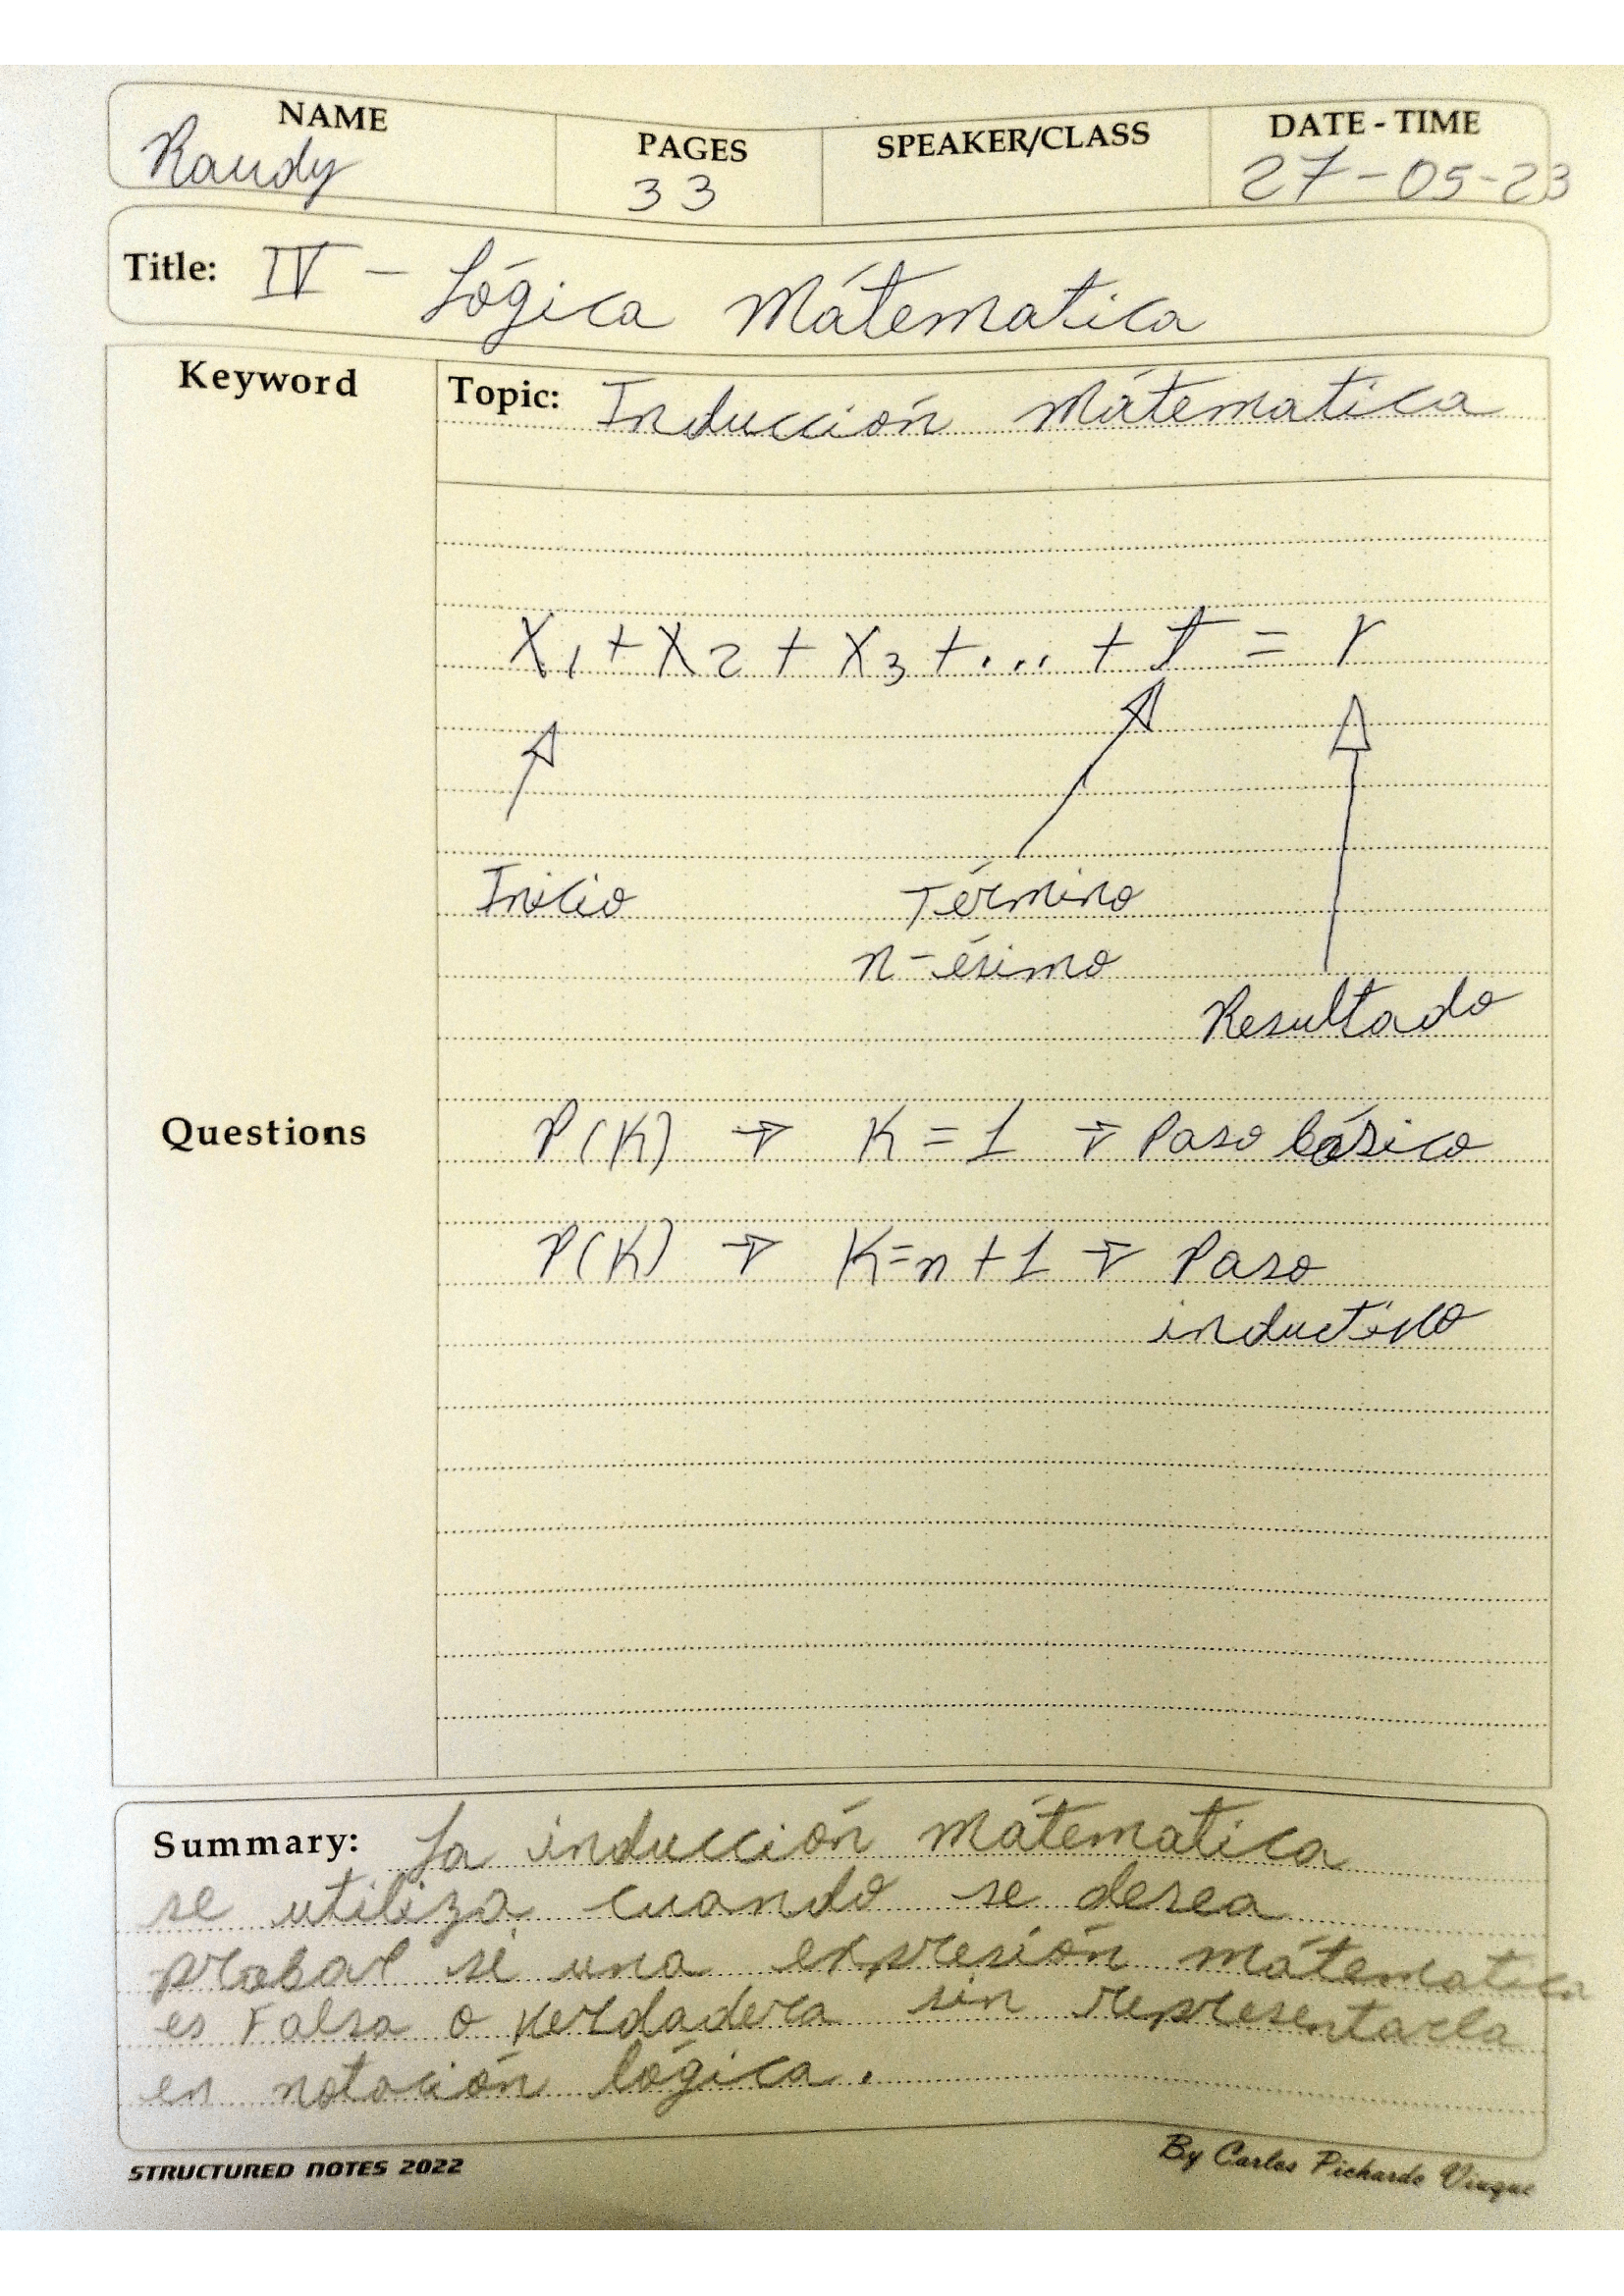 NAME PAGES SPEAKER/CLASS DATE - TIME
Raudy 33 27-05-23
Title: IV - Lógica Mátematica
Keyword
Topic: Inducción Mátematica
X1 + X2 + X3 + ... + T = r
Inicio Término
n-ésimo
Resultado
Questions
P(K) → K = 1 → Paso básico
P(K) → K=n+1 → Paso
inductivo
Summary: La inducción mátematica
se utiliza cuando se desea
probar si una expresión mátematica
es Falsa o verdadera sin representarla
en notación lógica.
STRUCTURED NOTES 2022 By Carlos Pichardo Viuque